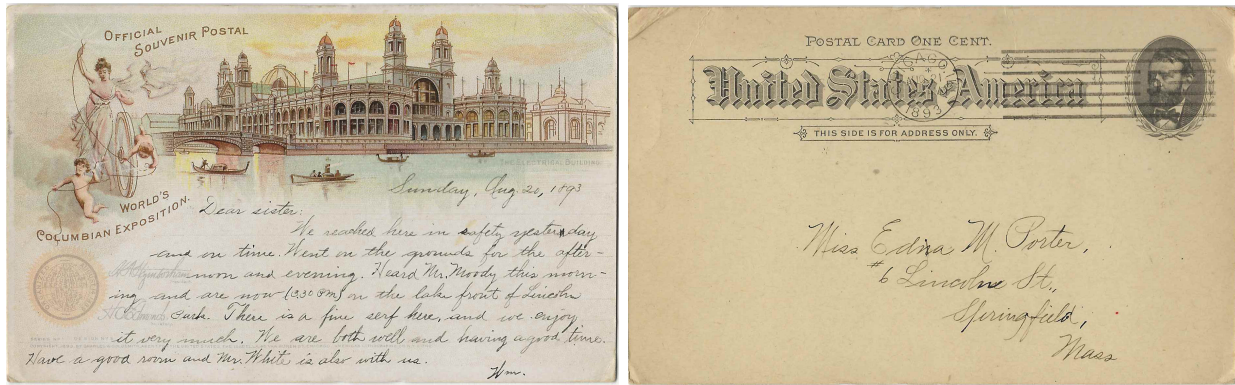 OFFICIAL
SOUVENIR POSTAL
THE ELECTRICAL BUILDING.
WORLD'S
COLUMBIAN EXPOSITION.
Sunday, Aug. 20, 1893
Dear sister:
We reached here in safety yesterday
and on time. Went on the grounds for the after-
noon and evening. Heard Mr. Moody this morn-
ing and are now (3.30 PM) on the lake front of Lincoln
Park. There is a fine serf here, and we enjoy
it very much. We are both well and having a good time.
Have a good room and Mr. White is also with us.
Wm.
POSTAL CARD ONE CENT.
United States of America
CHICAGO
1893
THIS SIDE IS FOR ADDRESS ONLY.
Miss Edna M. Porter,
#6 Lincoln St.,
Springfield,
Mass